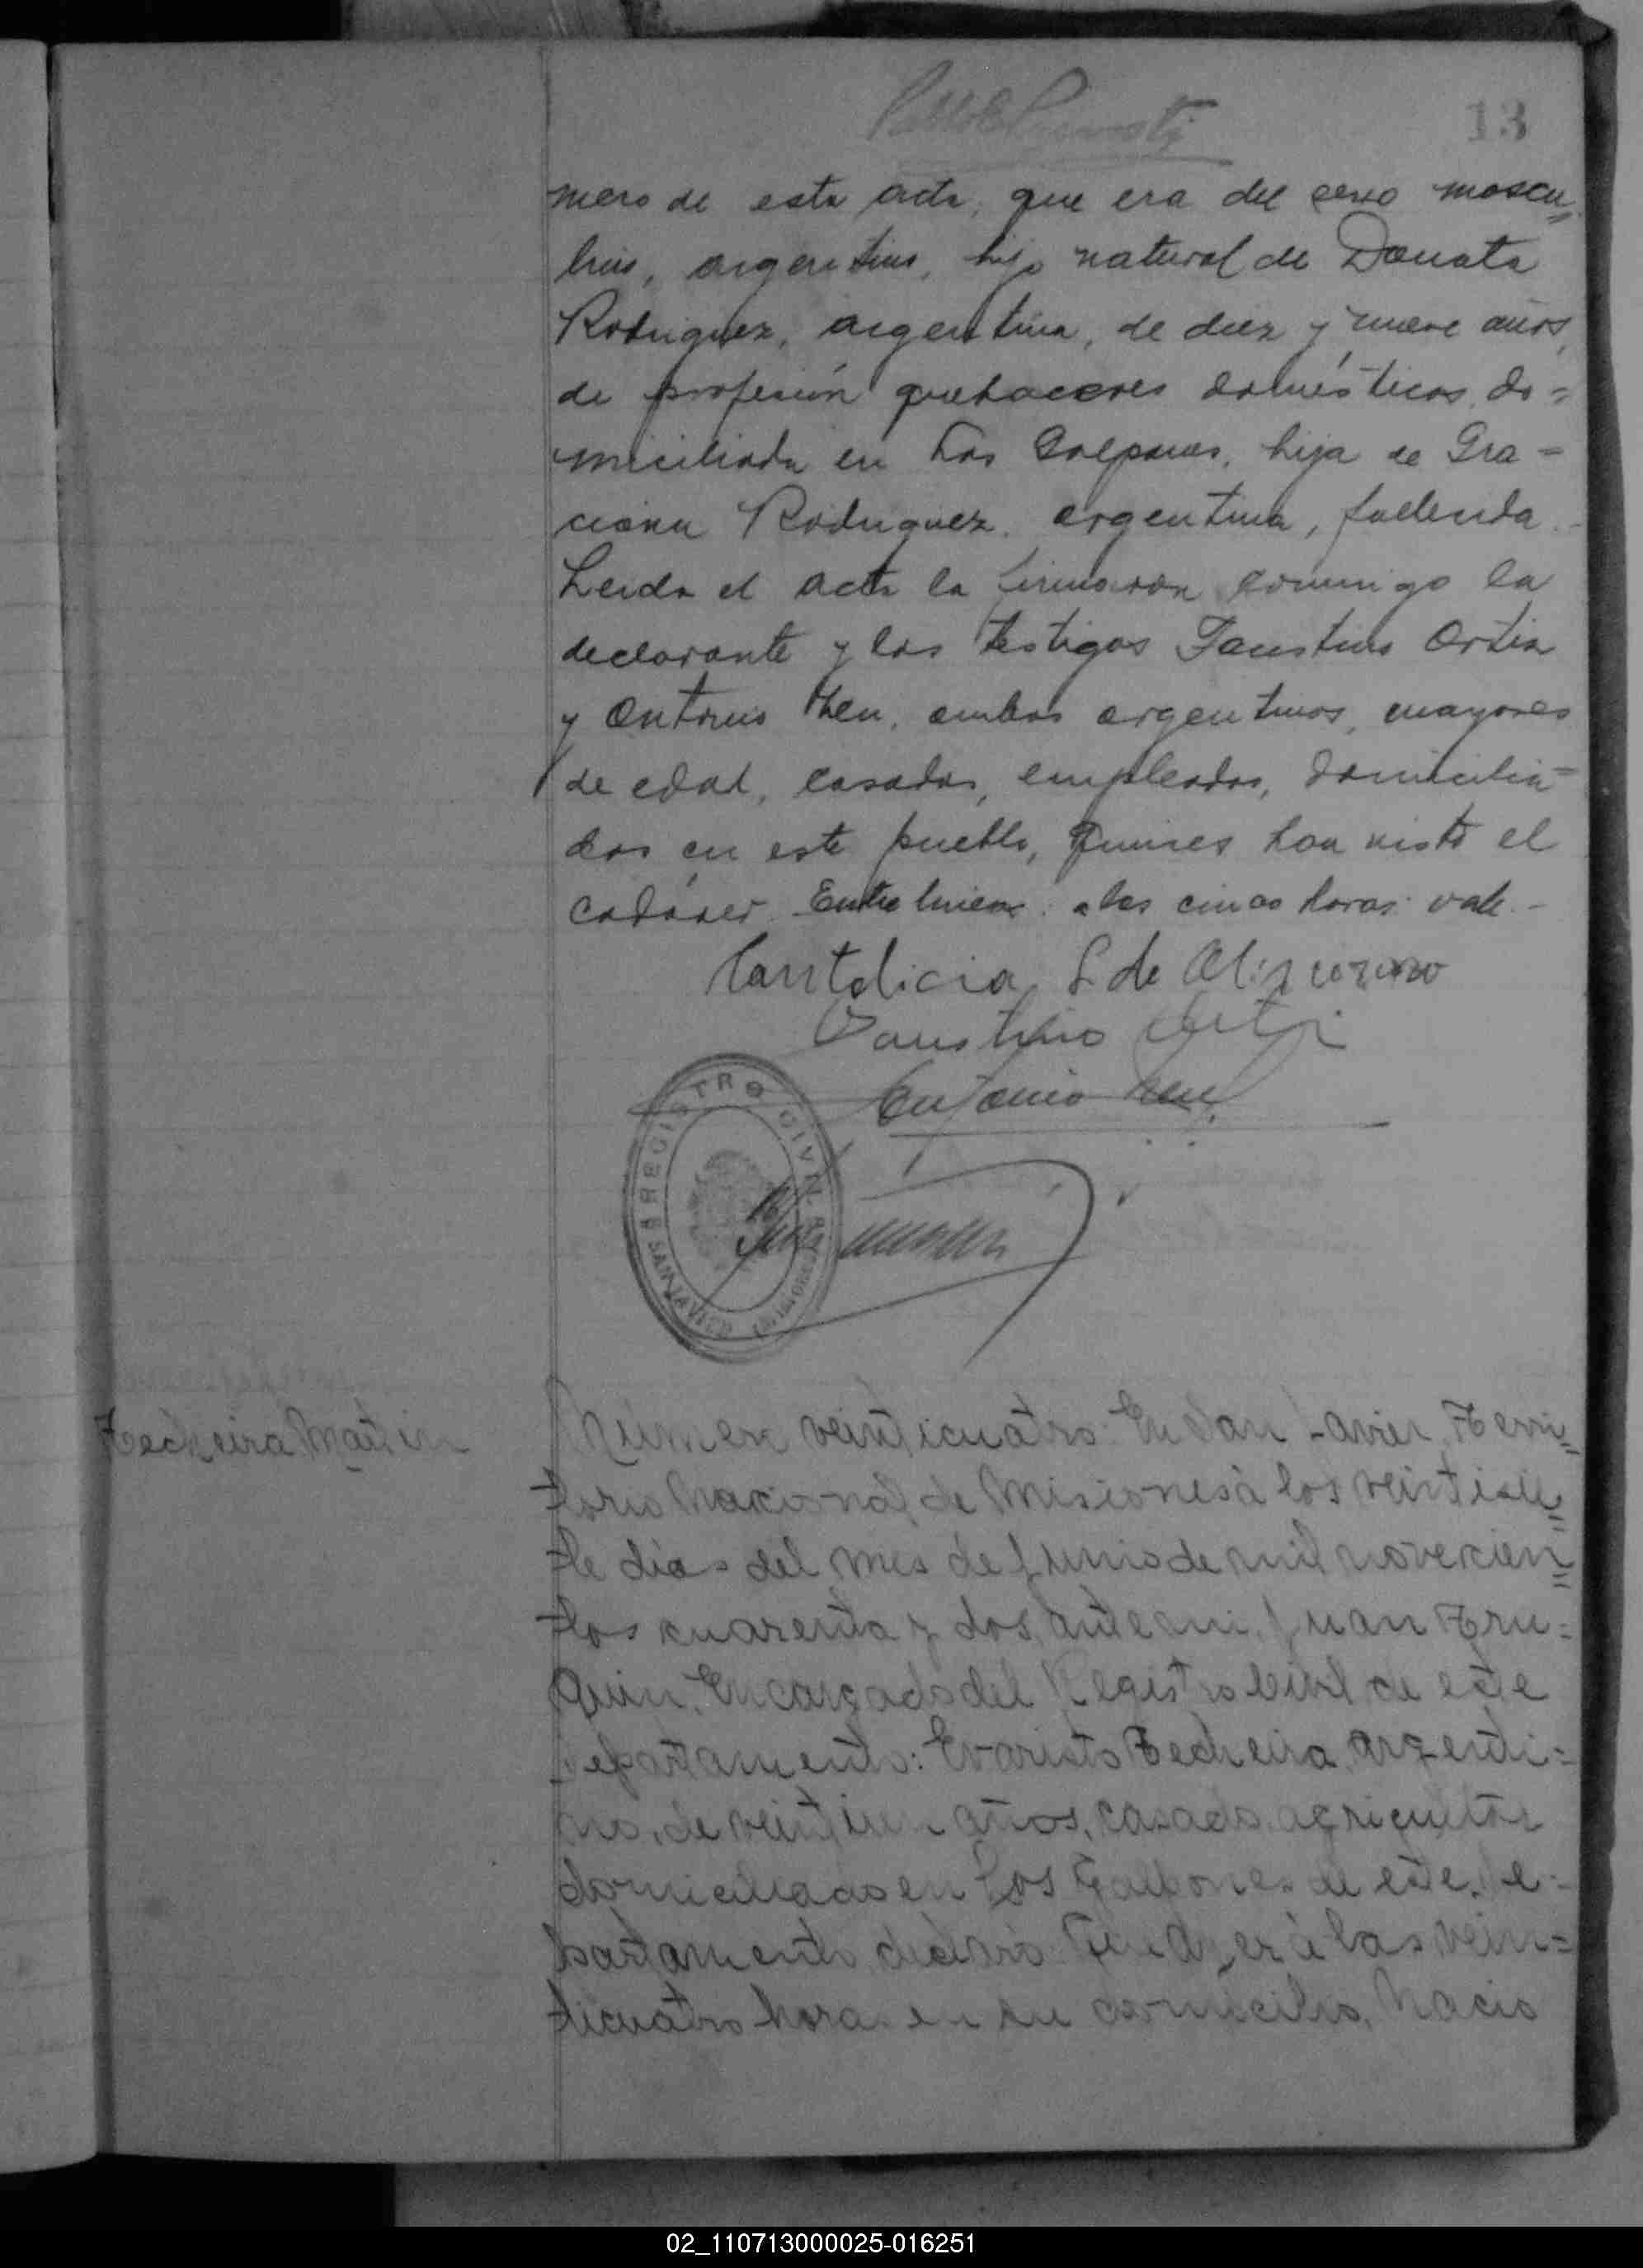 13
mero de esta acta, que era del sexo mascu=
lino, argentino, hijo natural de Donata
Rodriguez, argentina, de diez y nueve años,
de profesión quehaceres domésticos, do=
miciliada en Los Galpones, hija de Gra=
ciana Rodriguez, argentina, fallecida.-
Leida el acta la firmaron conmigo la
declarante y los testigos Faustino Ortiz
y Antonio Zen, ambos argentinos, mayores
de edad, casados, empleados, domicilia=
dos en este pueblo, quienes han visto el
cadáver. Entre lineas: a las cinco horas: vale.-
L. de
Faustino
Antonio Zen
REGISTRO CIVIL
SAN JAVIER
Techeira Martin
Número veinticuatro: En San Javier, Terri=
torio Nacional de Misiones à los veintisie=
te días del mes de Junio de mil novecien=
tos cuarenta y dos, ante mi, Juan Tru=
quin, Encargado del Registro Civil de este
Departamento: Evaristo Techeira, argenti=
no, de años, casado, agricultor
domiciliado en Los Galpones de este De=
partamento, declaró: Que ayer à las vein=
ticuatro horas en su domicilio, nació
02_110713000025-016251